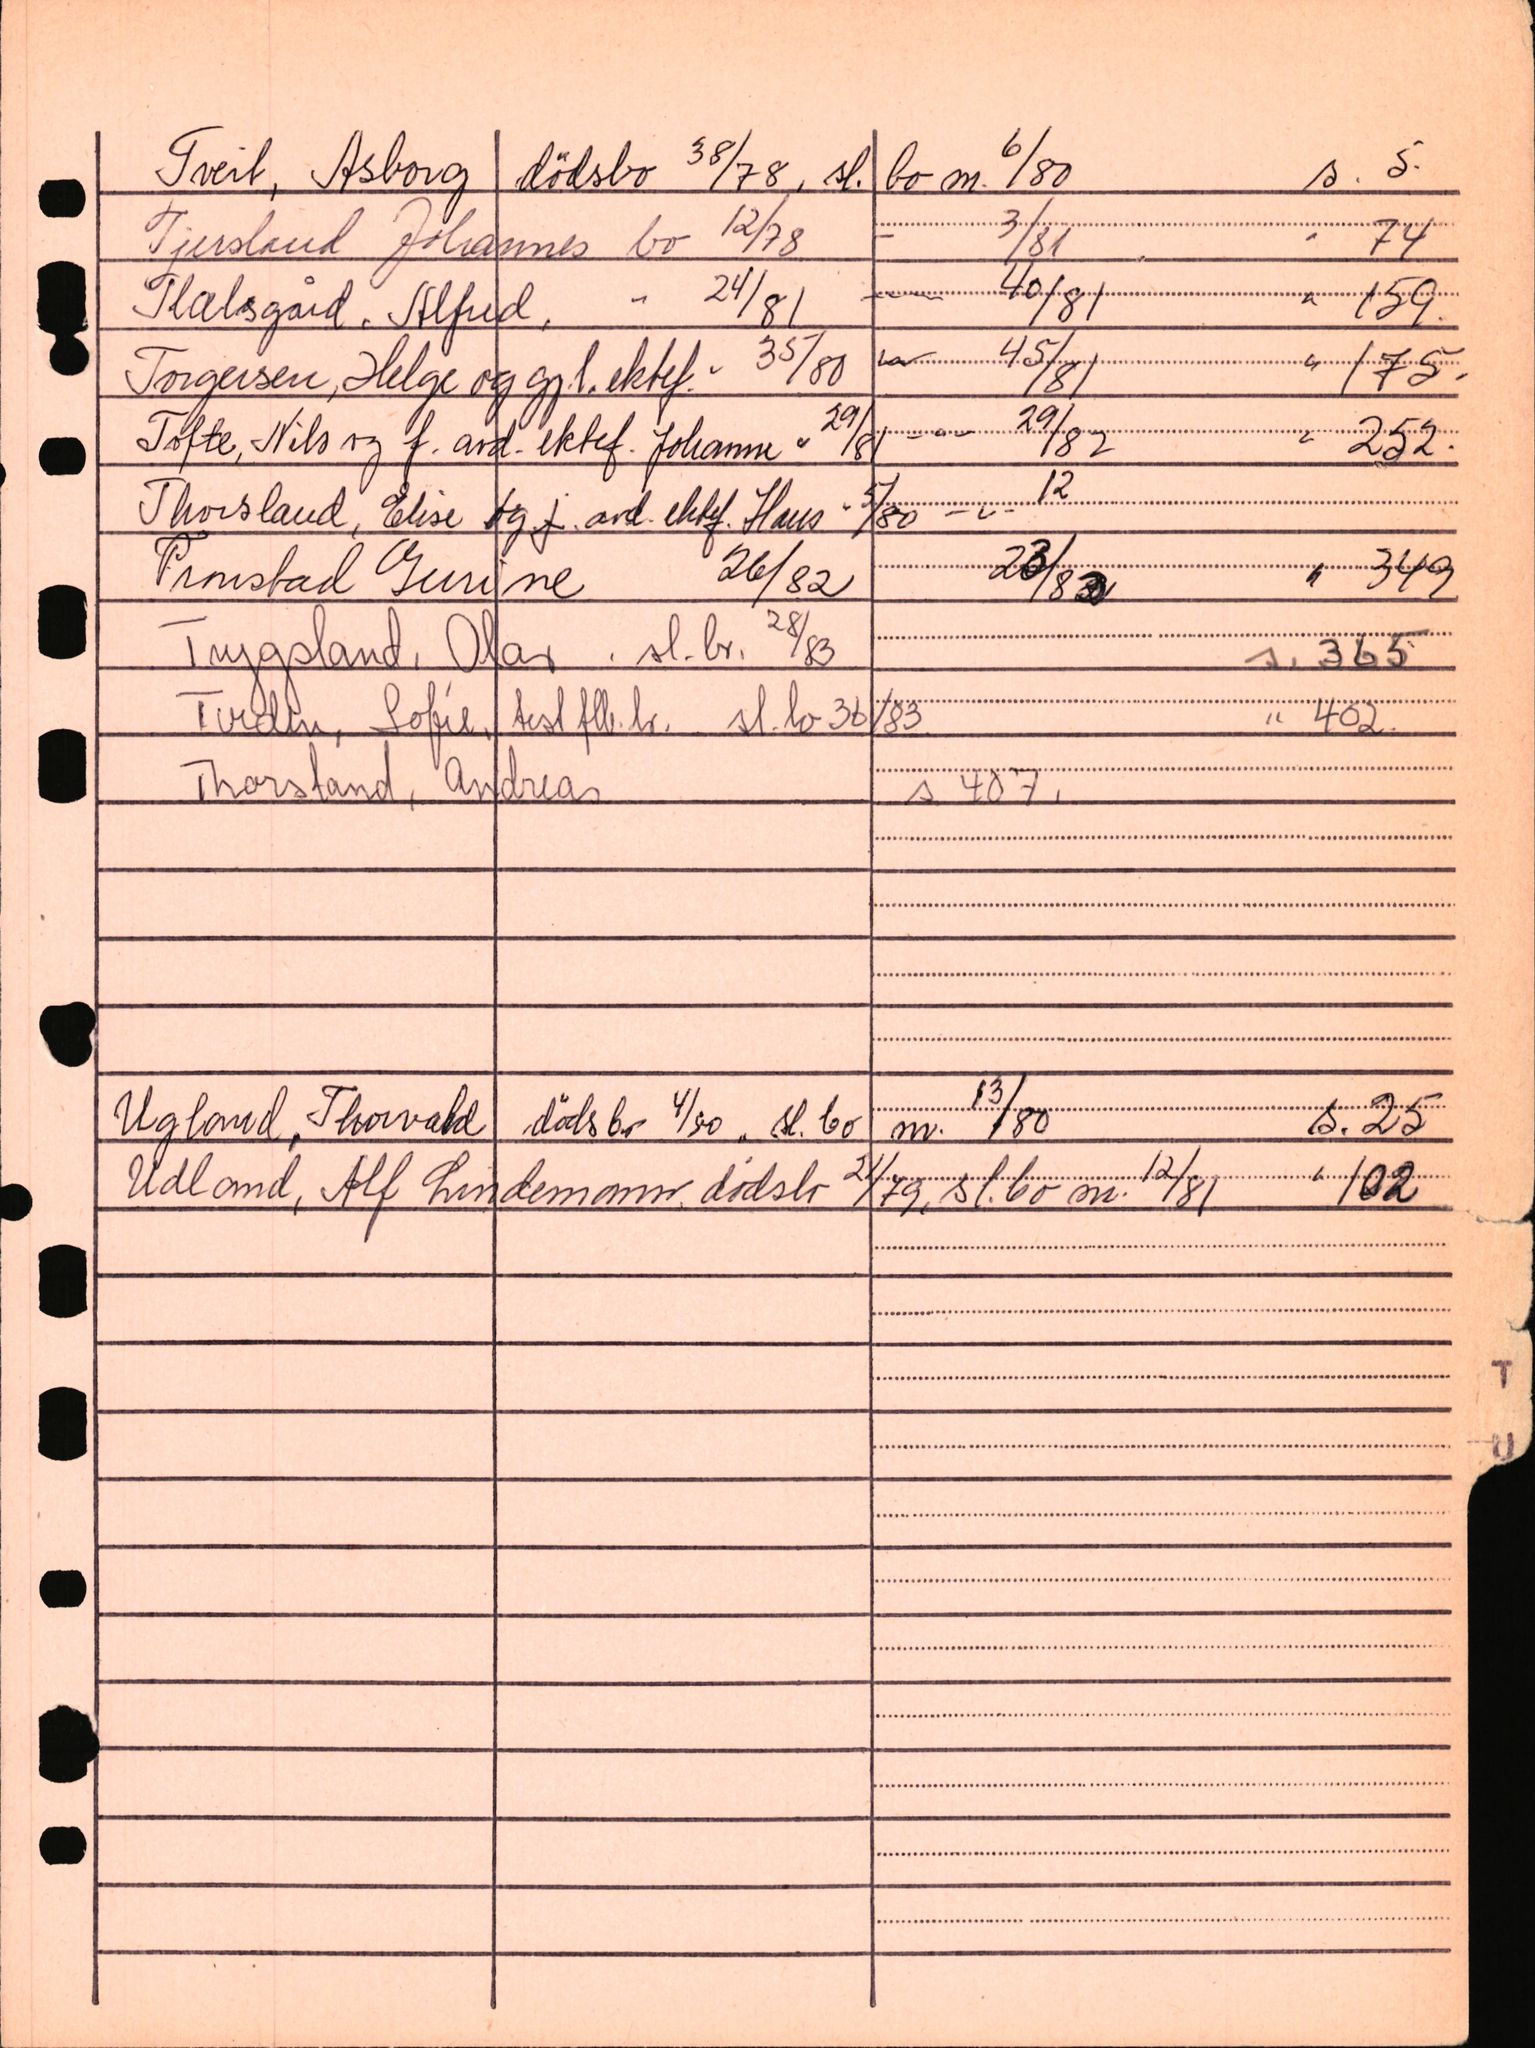 Tveit, Asborg dödsbo 38/78, sl. bo m. 6/80 s. 5.
Tjersland Johannes bo 12/78 - 3/81 " 74
Alfred, " 24/81 ---- 40/81 " 159.
Torgersen, Helge og gjl. ektef. " 35/80 45/81 " 175.
Tofte, Nils og f. avd. ektef. Johanne " 29/81 --- 29/82 " 252.
Thorsland, Elise og f. avd. ektef. Hans " 5/80 -"- 12
Tronstad Gurine 26/82 23/83 " 349
Tryggsland, Olav . sl. bo. 28/83 s. 365
Sofie, sl. bo 36/83 " 402.
Thorsland, Andreas s 407.
Ugland, Thorvald dödsbo 4/80, sl. bo m. 13/80 s. 25
Udland, Alf Lindemann, dödsbo 21/79, sl. bo m. 12/81 " 102
T
U